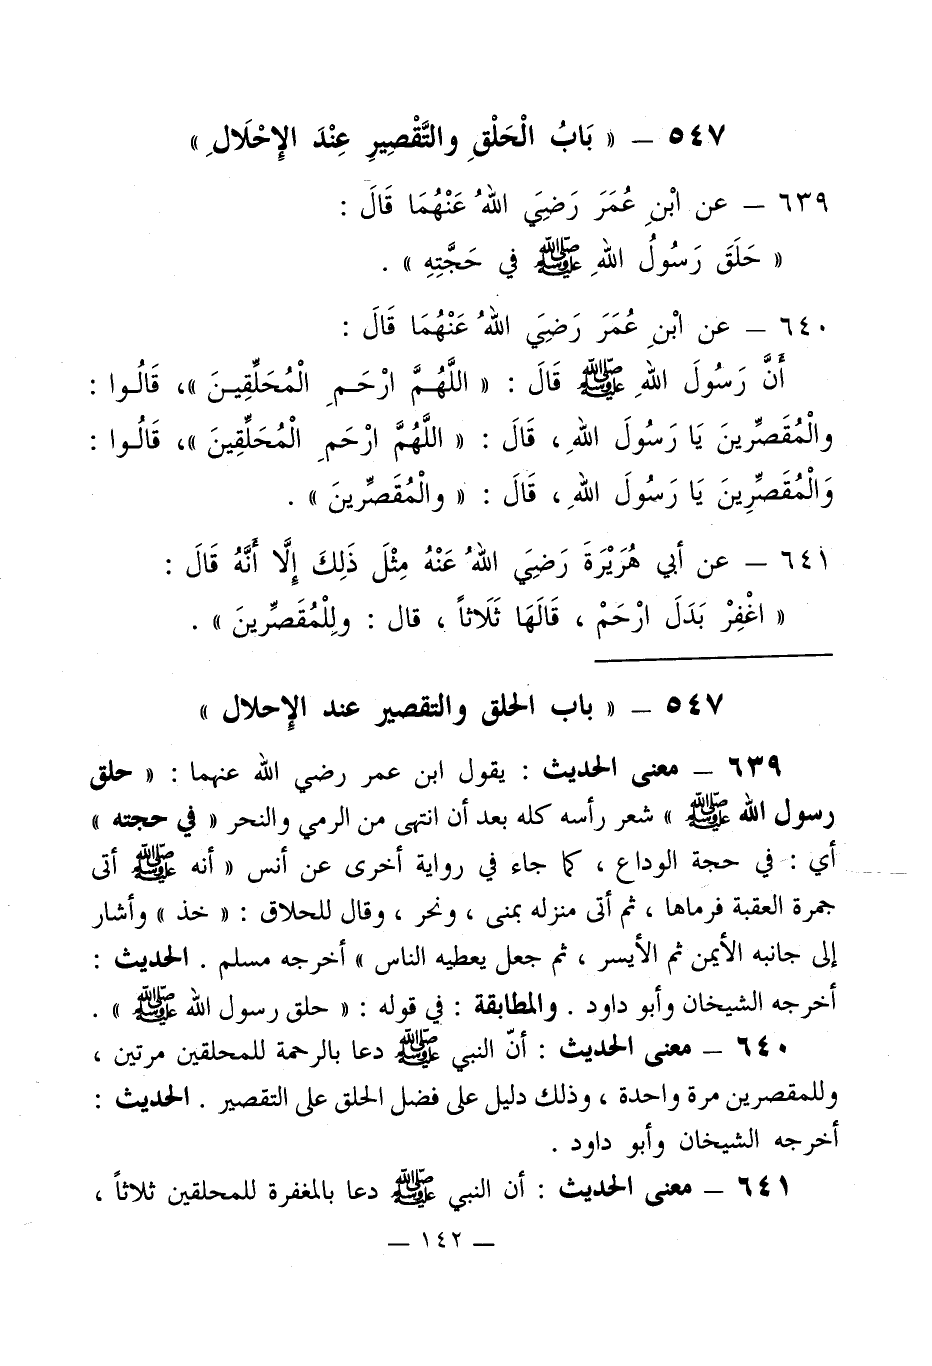 ٥٤٧ ــ « بَابُ الْحَلْقِ والتَّقْصِيرِ عِنْدَ الإِحْلَالِ »
٦٣٩ ــ عن ابْنِ عُمَرَ رَضِيَ اللهُ عَنْهُمَا قَالَ :
« حَلَقَ رَسُولُ اللهِ ﷺ في حَجَّتِهِ » .
٦٤٠ ــ عن ابْنِ عُمَرَ رَضِيَ اللهُ عَنْهُمَا قَالَ :
أَنَّ رَسُولَ اللهِ ﷺ قَالَ : « اللَّهُمَّ ارْحَمِ الْمُحَلِّقِينَ »، قَالُوا :
والْمُقَصِّرِينَ يَا رَسُولَ اللهِ ، قَالَ : « اللَّهُمَّ ارْحَمِ الْمُحَلِّقِينَ »، قَالُوا :
وَالْمُقَصِّرِينَ يَا رَسُولَ اللهِ ، قَالَ : « والْمُقَصِّرِينَ » .
٦٤١ ــ عن أبي هُرَيْرَةَ رَضِيَ اللهُ عَنْهُ مِثْلَ ذَلِكَ إِلَّا أَنَّهُ قَالَ :
« اغْفِرْ بَدَلَ ارْحَمْ ، قَالَهَا ثَلَاثاً ، قال : ولِلْمُقَصِّرِينَ » .
٥٤٧ ــ « باب الحلق والتقصير عند الإحلال »
٦٣٩ ــ معنى الحديث : يقول ابن عمر رضي الله عنهما : « حلق
رسول الله ﷺ » شعر رأسه كله بعد أن انتهى من الرمي والنحر « في حجته »
أي : في حجة الوداع ، كما جاء في رواية أخرى عن أنس « أنه ﷺ أتى
جمرة العقبة فرماها ، ثم أتى منزله بمنى ، ونحر ، وقال للحلاق : « خذ » وأشار
إلى جانبه الأيمن ثم الأيسر ، ثم جعل يعطيه الناس » أخرجه مسلم . الحديث :
أخرجه الشيخان وأبو داود . والمطابقة : في قوله : « حلق رسول الله ﷺ » .
٦٤٠ ــ معنى الحديث : أنّ النبي ﷺ دعا بالرحمة للمحلقين مرتين ،
وللمقصرين مرة واحدة ، وذلك دليل على فضل الحلق على التقصير . الحديث :
أخرجه الشيخان وأبو داود .
٦٤١ ــ معنى الحديث : أن النبي ﷺ دعا بالمغفرة للمحلقين ثلاثاً ،
ــ ١٤٢ ــ